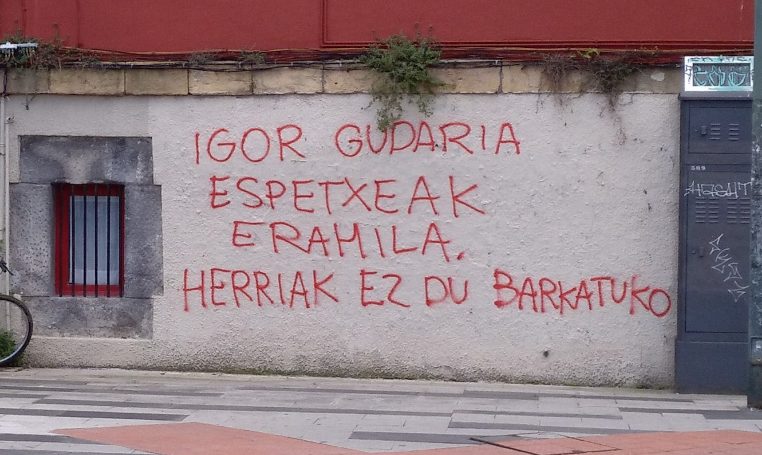 IGOR GUDARIA
ESPETXEAK
ERAHILA.
HERRIAK EZ DU BARKATUKO
589